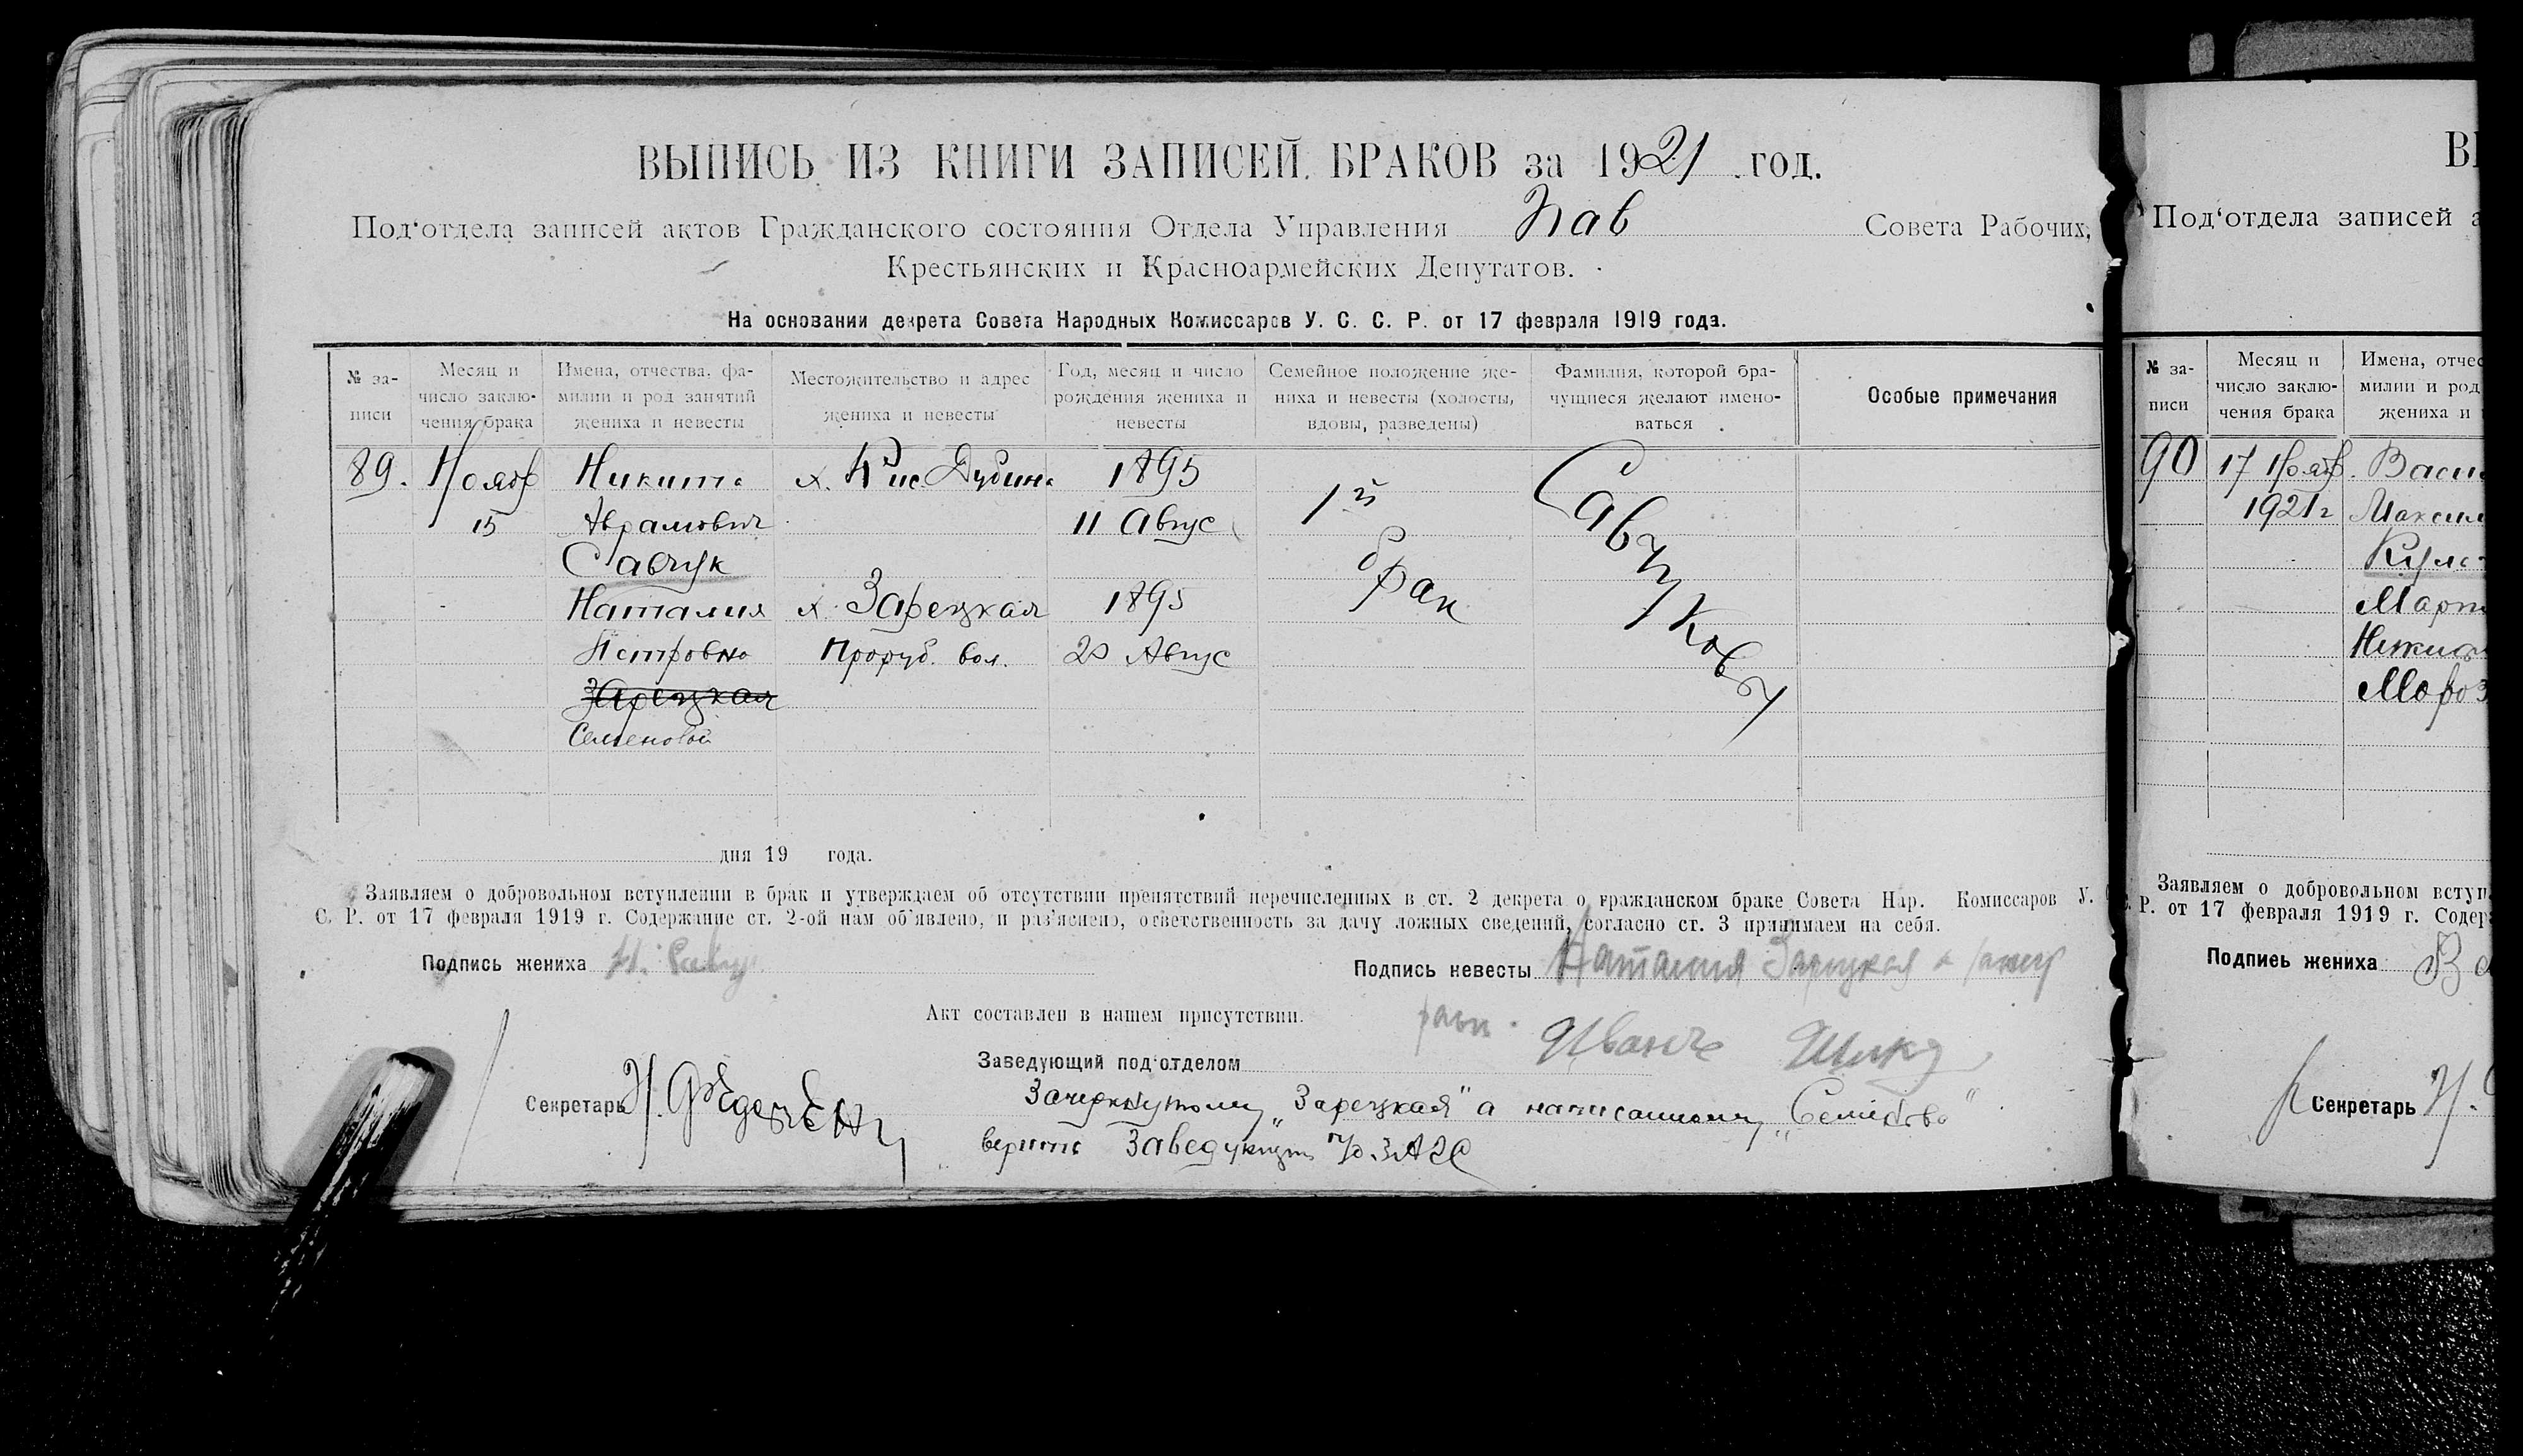 ВЫПИСЬ ИЗ КНИГИ ЗАПИСЕЙ БРАКОВ за 1921 год.
Под'отдела записей актов Гражданского состояния Отдела Управления Совета Рабочих,
Крестьянских и Красноармейских Депутатов.
На основании декрета Совета Народных Комиссаров У. С. С. Р. от 17 февраля 1919 года.
№ за-
писи
Месяц и
число заклю-
чения брака
Имена, отчества, фа-
милии и род занятий
жениха и невесты
Местожительство и адрес
жениха и невесты
Год, месяц и число
рождения жениха и
невесты
Семейное положение же-
ниха и невесты (холосты,
вдовы, разведены)
Фамилия, которой бра-
чущиеся желают имено-
ваться
Особые примечания
89. Нояб Никита х. Дубина 1895
15 Аврамович 11 Авгус
Савчук
Наталия х. Зарецкая 1895
Петровна Проруб. вол. 20 Авгус
Зарецкая
Семеновой
1й
брак
Савчукову
дня 19 года.
Заявляем о добровольном вступлении в брак и утверждаем об отсутствии препятствий перечисленных в ст. 2 декрета о гражданском браке Совета Нар. Комиссаров У.
С. Р. от 17 февраля 1919 г. Содержание ст. 2-ой нам об'явлено, и раз'яснено, ответственность за дачу ложных сведений, согласно ст. 3 принимаем на себя.
Подпись жениха Н.
Подпись невесты Наталия Зарецкая
Акт составлен в нашем присутствии.
Заведующий под'отделом
Секретарь
Зачеркнутому „Зарецкая" а написанному „Семенова"
верить Заведующ п/о ЗАГС
В
Под'отдела записей
№ за-
писи
Месяц и
число заклю-
чения брака
Имена, отчес
милии и род
жениха и
90 17 Нояб.
1921г
Заявляем о добровольном вступ
Р. от 17 февраля 1919 г. Содер
Подпись жениха
Секретарь